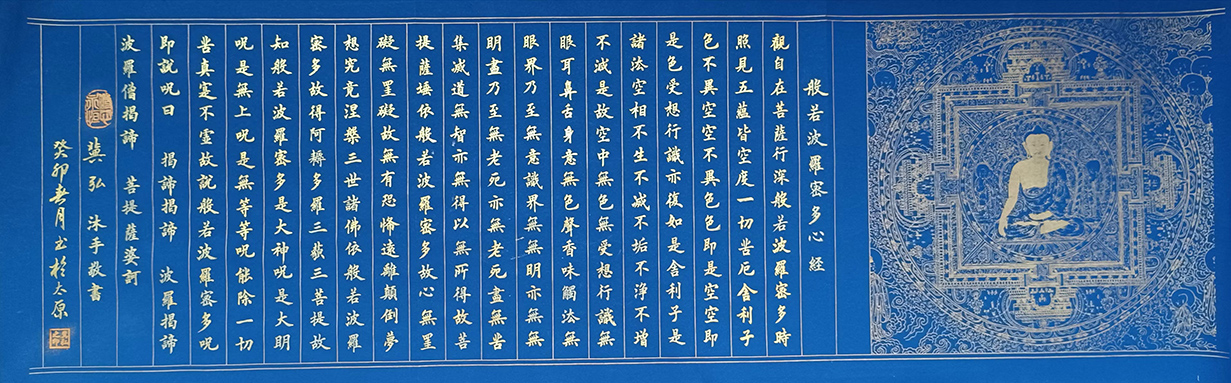 般若波羅密多心經
觀自在菩薩行深般若波羅密多時
照見五蘊皆空度一切苦厄舍利子
色不異空空不異色色即是空空即
是色受想行識亦復如是舍利子是
諸法空相不生不滅不垢不淨不增
不減是故空中無色無受想行識無
眼耳鼻舌身意無色聲香味觸法無
眼界乃至無意識界無無明亦無無
明盡乃至無老死亦無老死盡無苦
集滅道無智亦無得以無所得故菩
提薩埵依般若波羅密多故心無罣
礙無罣礙故無有恐怖遠離顛倒夢
想究竟涅槃三世諸佛依般若波羅
密多故得阿耨多羅三藐三菩提故
知般若波羅密多是大神呪是大明
呪是無上呪是無等等呪能除一切
苦真寔不虛故說般若波羅密多呪
即說呪曰 揭諦揭諦 波羅揭諦
波羅僧揭諦 菩提薩婆訶
冀弘 沐手敬書
癸卯春月书於太原